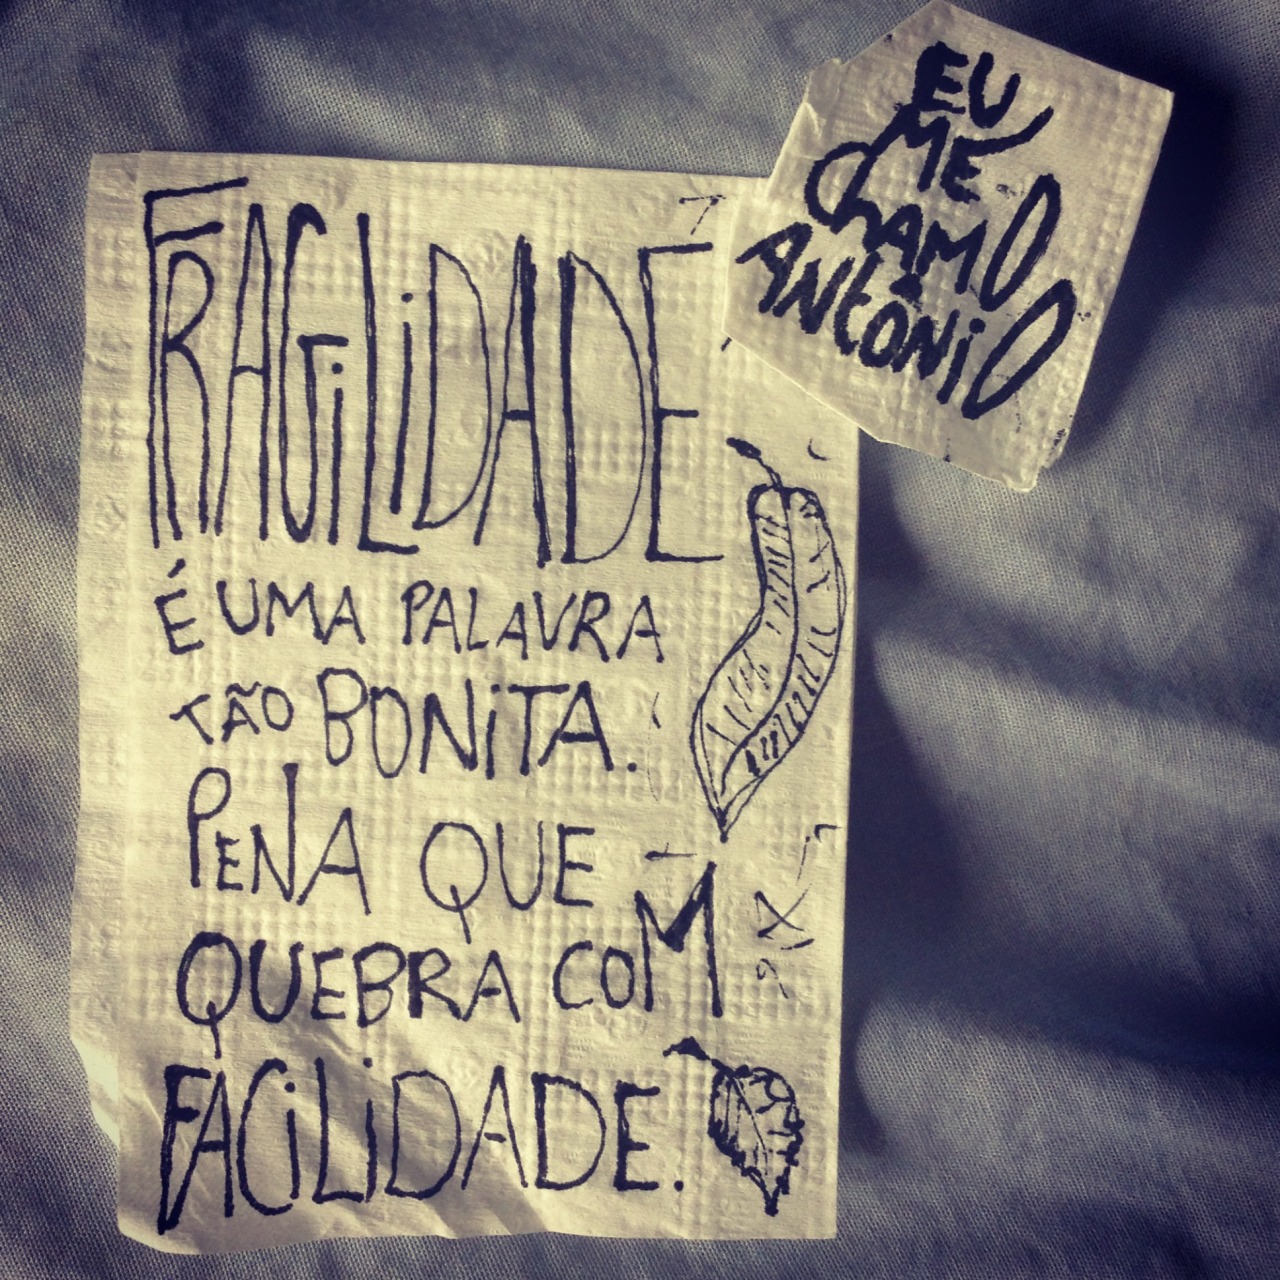 FRAGiLiDADE
É UMA PALAVRA
TÃO BONiTA.
PENA QUE
QUEBRA COM
FACiLiDADE.
EU
ME
ChAMO
ANTÔNiO